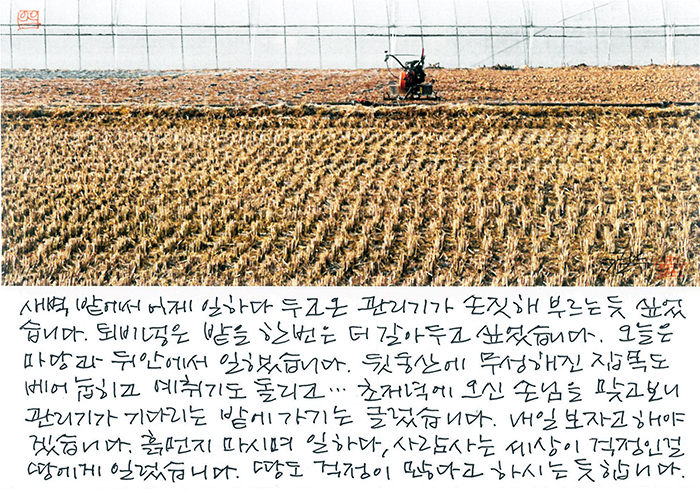 새벽 밭에서 어제 일하다 두고온 관리기가 손짓해 부르는듯 싶었
습니다. 퇴비넣은 밭을 한번은 더 갈아두고 싶었습니다. 오늘은
마당과 뒤안에서 일했습니다. 뒷동산에 무성해진 잡목도
베어 눕히고 예취기도 돌리고… 초저녁에 오신 손님을 맞고보니
관리기가 기다리는 밭에 가기는 글렀습니다. 내일 보자고 해야
겠습니다. 흙먼지 마시며 일하다, 사람사는 세상이 걱정인걸
땅에게 일렀습니다. 땅도 걱정이 많다고 하시는 듯합니다.